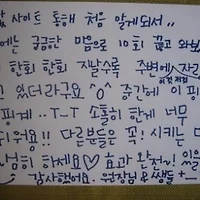 사이트 통해 처음 알게되서..
에는 궁금한 마음으로 10회 끊고 와보
한회 한회 지날수록 주변에 자
있더라구요 ^o^ 중간에 이 핑
핑계..T_T 소홀히 한게 너무
워요!! 다른분들은 꼭! 시키는 대
하세요♡ 효과 완전~!
감사했어요. 원장님 & 쌤들 +